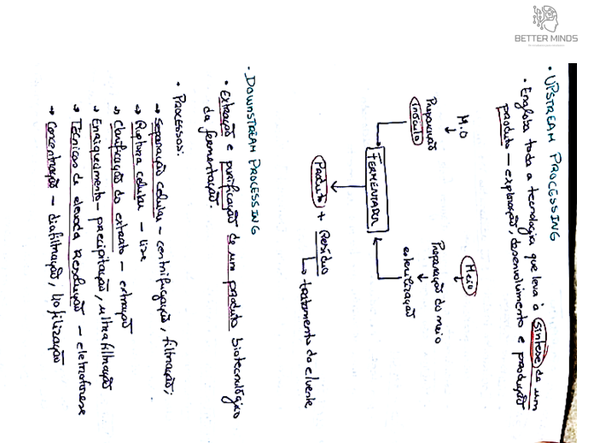 BETTER MINDS
• UPSTREAM PROCESSING
• Engloba toda a tecnologia que leva à síntese de um
produto – exploração, desenvolvimento e produção
M.O
Preparação
Inóculo
Meio
Preparação do meio
esterilização
FERMENTADOR
Produto + Resíduo
tratamento do efluente
• DOWNSTREAM PROCESSING
• Extração e purificação de um produto biotecnológico
da fermentação.
• PROCESSOS:
→ Separação celular – centrifugação, filtração;
→ Ruptura celular – lise
→ Clarificação do extrato – extração
→ Enriquecimento – precipitação, ultrafiltração
→ Técnicas de elevada resolução – eletroforese
→ Concentração – diafiltração, liofilização